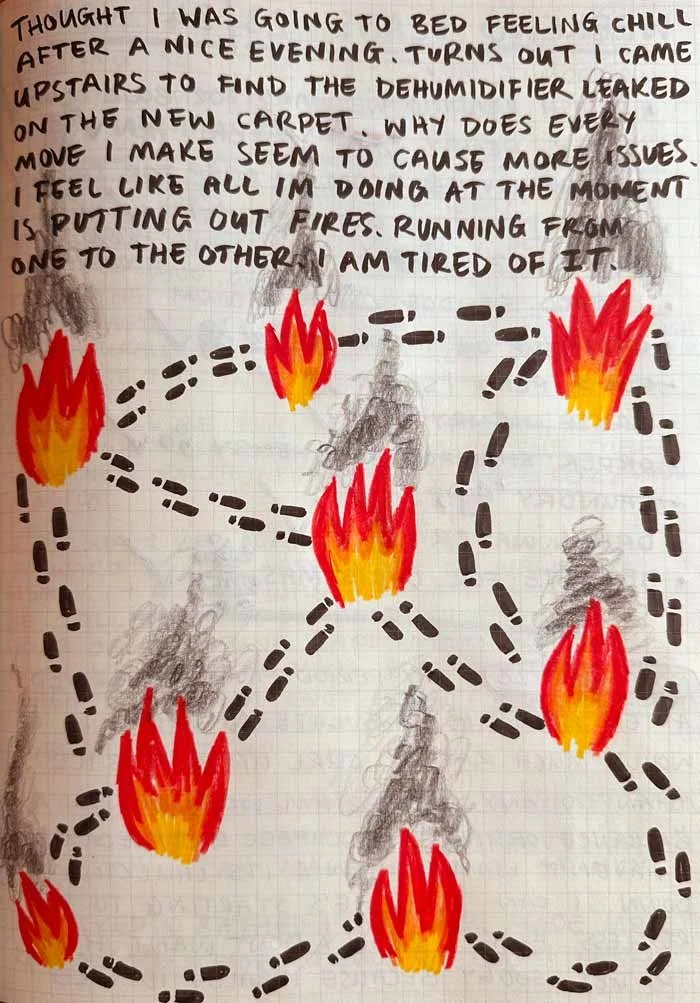 THOUGHT I WAS GOING TO BED FEELING CHILL
AFTER A NICE EVENING. TURNS OUT I CAME
UPSTAIRS TO FIND THE DEHUMIDIFIER LEAKED
ON THE NEW CARPET. WHY DOES EVERY
MOVE I MAKE SEEM TO CAUSE MORE ISSUES.
I FEEL LIKE ALL IM DOING AT THE MOMENT
IS PUTTING OUT FIRES. RUNNING FROM
ONE TO THE OTHER. I AM TIRED OF IT.